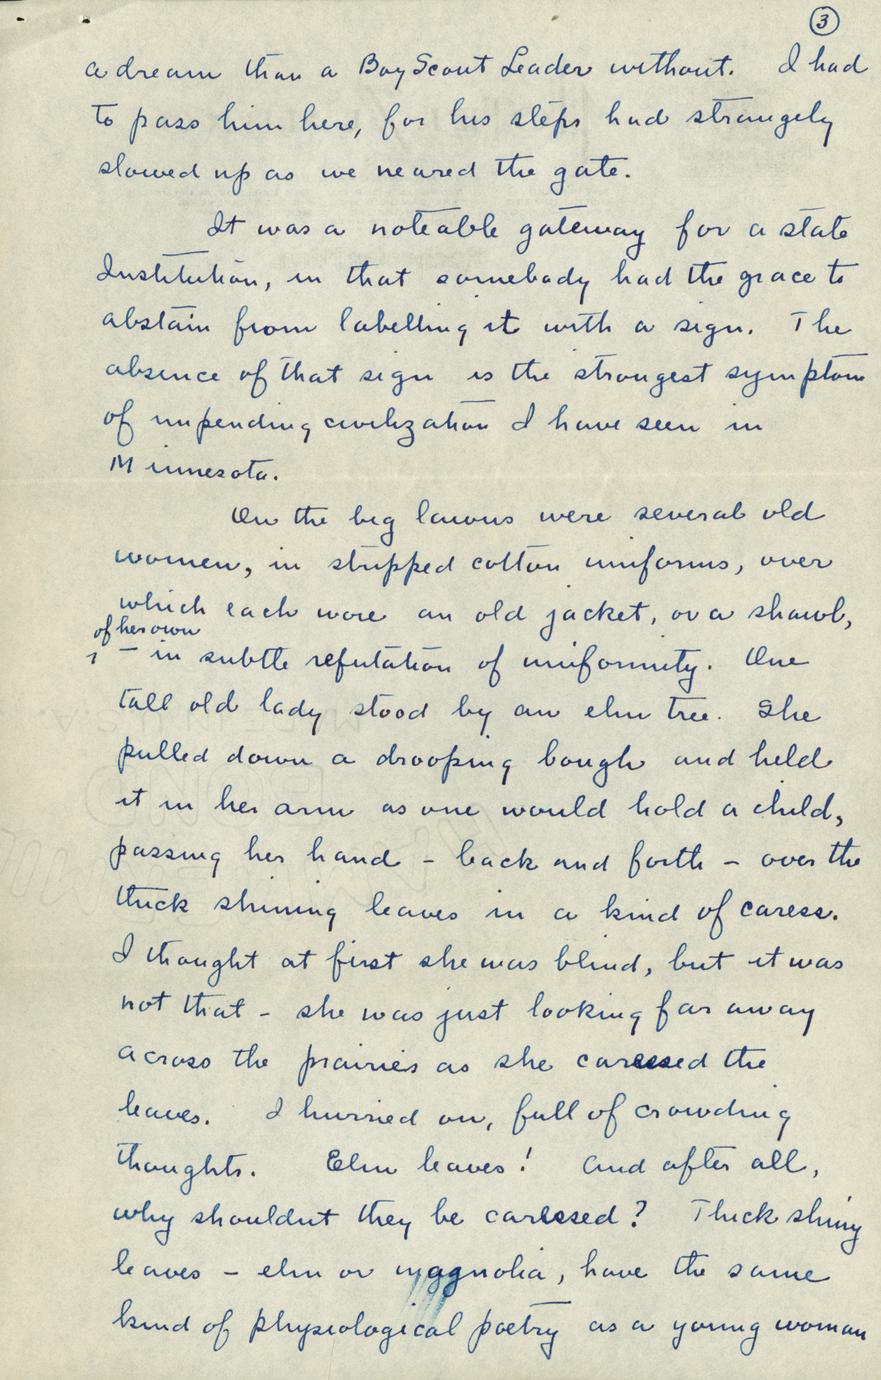 3
a dream than a Boy Scout Leader without. I had
to pass him here, for his steps had strangely
slowed up as we neared the gate.
It was a noteable gateway for a state
Institution, in that somebody had the grace to
abstain from labelling it with a sign. The
absence of that sign is the strongest symptom
of impending civilization I have seen in
Minnesota.
On the big lawns were several old
women, in stripped cotton uniforms, over
which each wore an old jacket, or a shawl,
of her own
– in subtle refutation of uniformity. One
tall old lady stood by an elm tree. She
pulled down a drooping bough and held
it in her arm as one would hold a child,
passing her hand – back and forth – over the
thick shining leaves in a kind of caress.
I thought at first she was blind, but it was
not that – she was just looking far away
across the prairies as she caressed the
leaves. I hurried on, full of crowding
thoughts. Elm leaves! And after all,
why shouldnt they be caressed? Thick shiny
leaves – elm or magnolia, have the same
kind of physiological poetry as a young woman